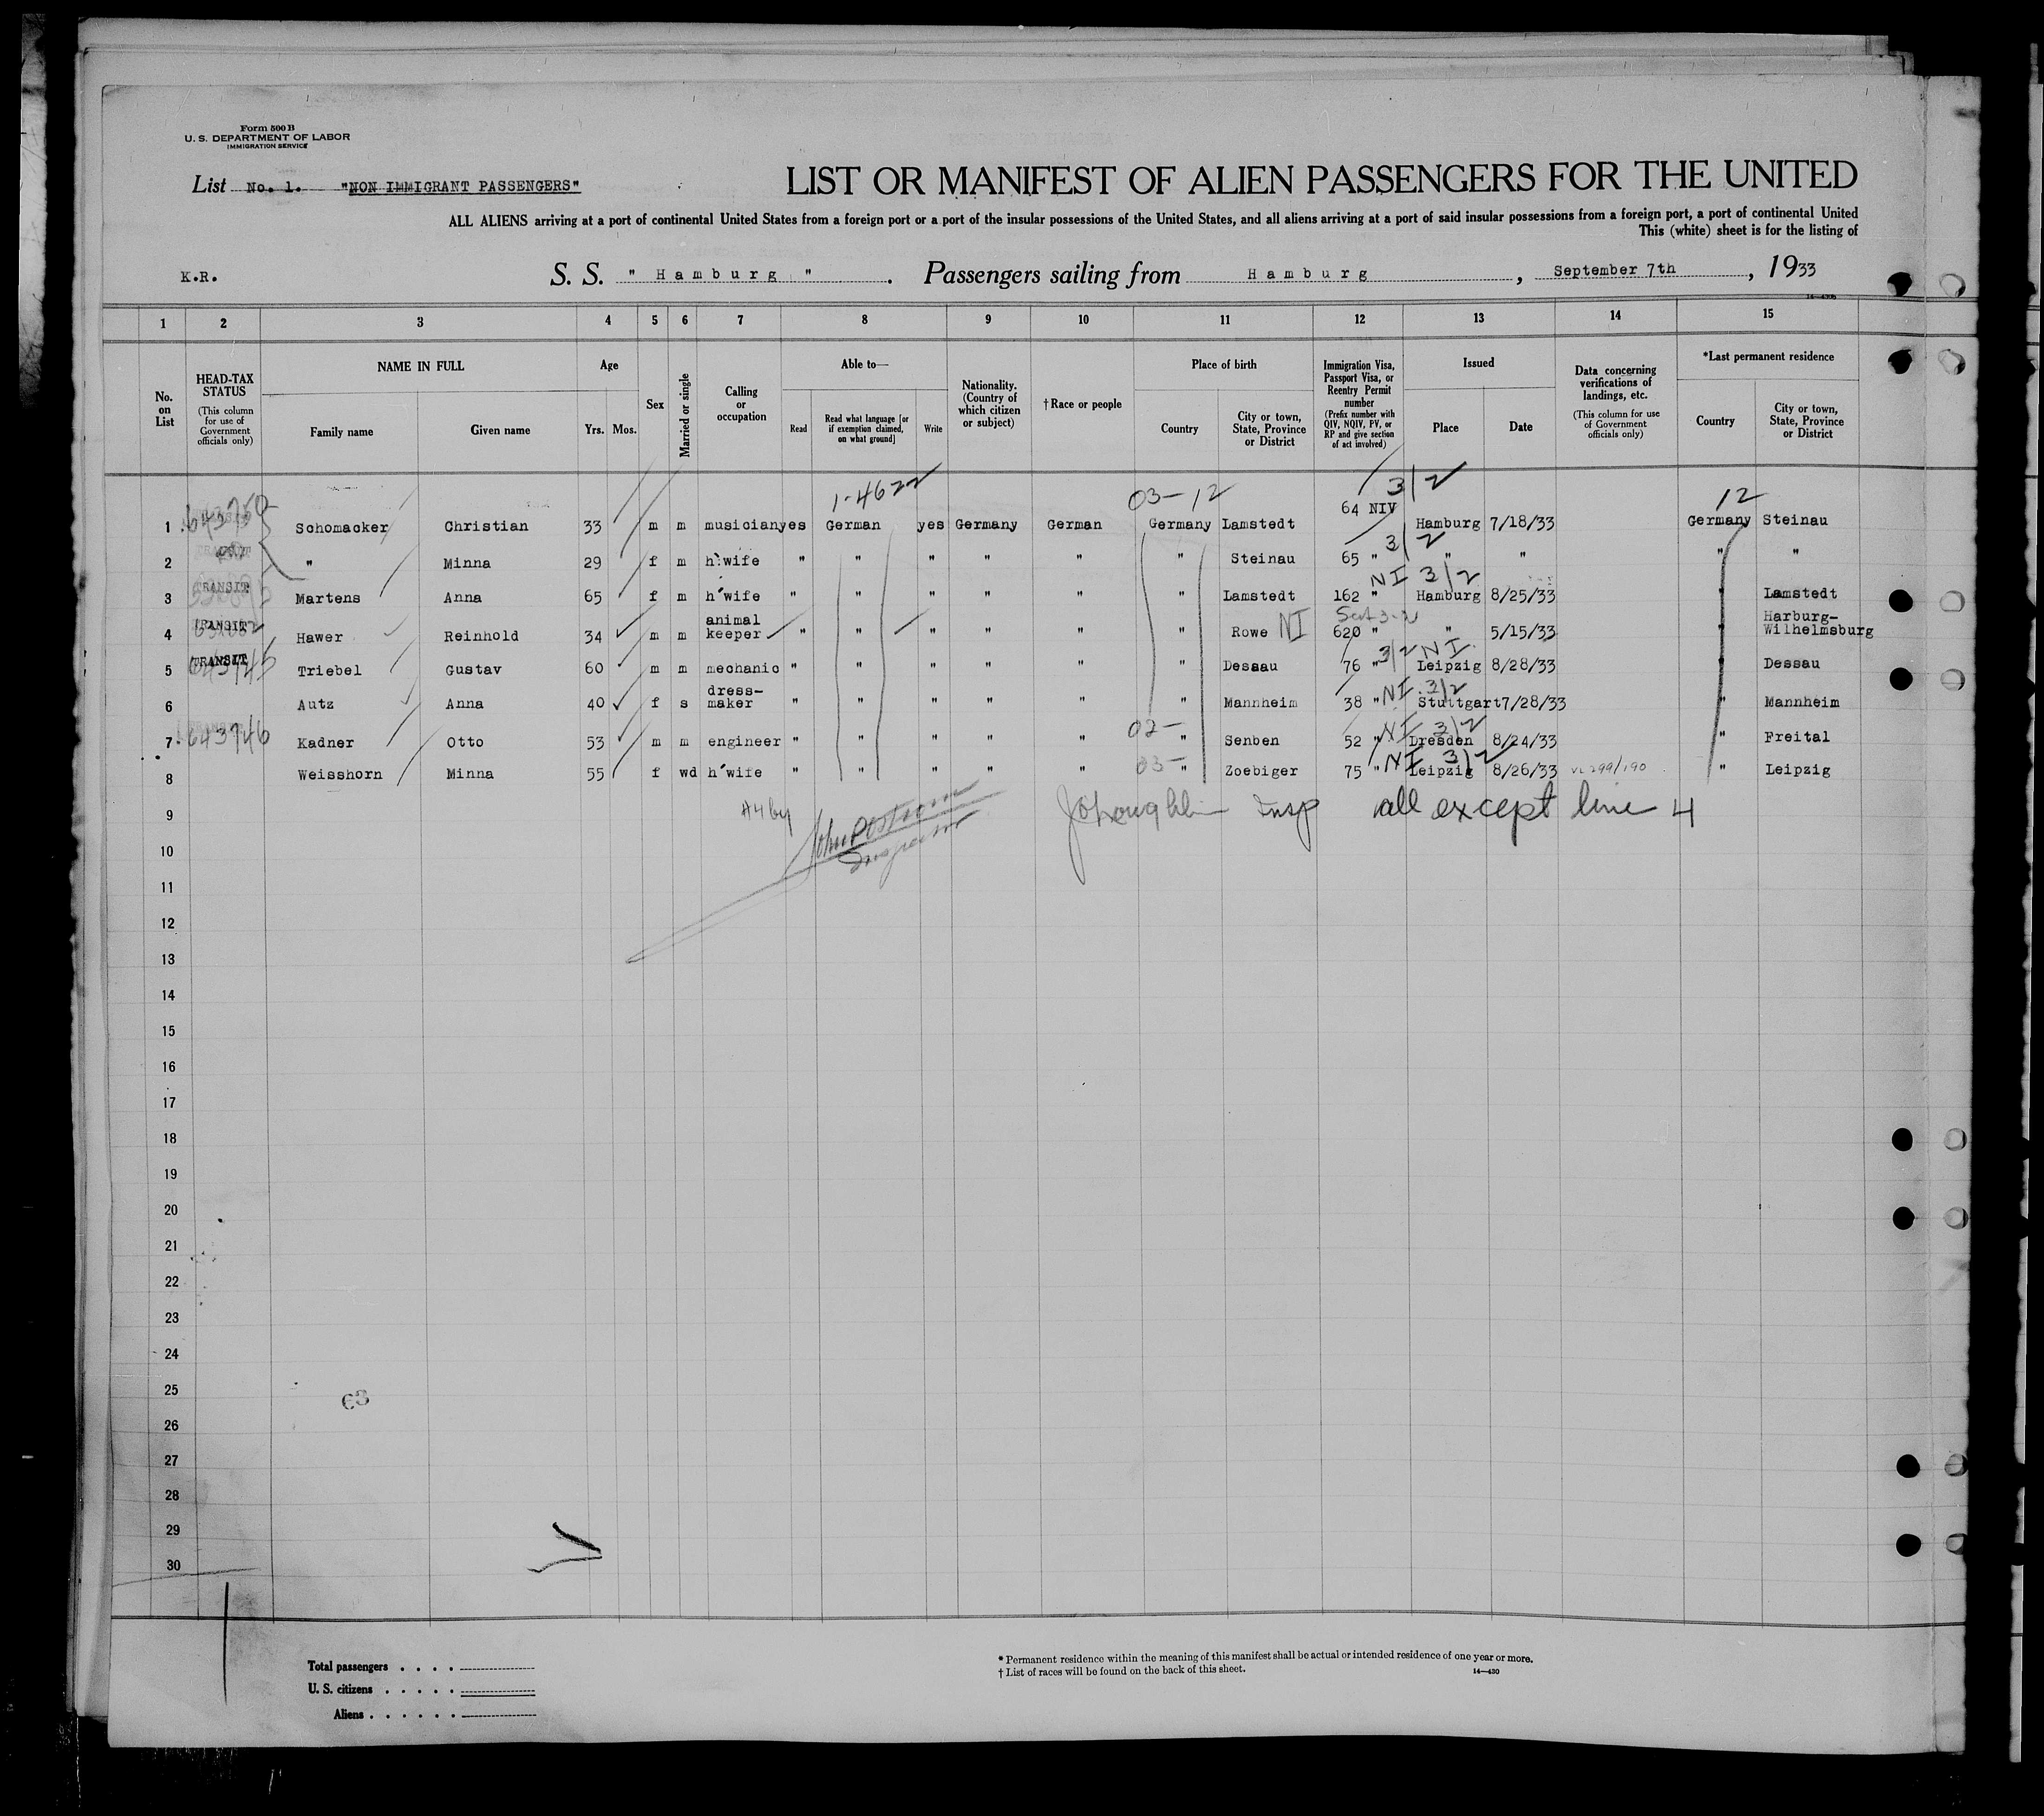 Form 500 B
U. S. DEPARTMENT OF LABOR
IMMIGRATION SERVICE
List No. 1. "NON IMMIGRANT PASSENGERS"
LIST OR MANIFEST OF ALIEN PASSENGERS FOR THE UNITED
ALL ALIENS arriving at a port of continental United States from a foreign port or a port of the insular possessions of the United States, and all aliens arriving at a port of said insular possessions from a foreign port, a port of continental United
This (white) sheet is for the listing of
K.R. S. S. " Hamburg " . Passengers sailing from Hamburg , September 7th , 1933
1 2 3 4 5 6 7 8 9 10 11 12 13 14 15
No. on List
HEAD-TAX STATUS (This column for use of Government officials only)
NAME IN FULL
Family name Given name
Age
Yrs. Mos.
Sex
Married or single
Calling or occupation
Able to—
Read Read what language [or if exemption claimed, on what ground] Write
Nationality. (Country of which citizen or subject)
†Race or people
Place of birth
Country City or town, State, Province or District
Immigration Visa, Passport Visa, or Reentry Permit number (Prefix number with QIV, NQIV, PV, or RP and give section of act involved)
Issued
Place Date
Data concerning verifications of landings, etc. (This column for use of Government officials only)
*Last permanent residence
Country City or town, State, Province or District
1-4622 03-12 3/2 12
1 Schomacker Christian 33 m m musician yes German yes Germany German Germany Lamstedt 64 NIV Hamburg 7/18/33 Germany Steinau
3/2
2 " Minna 29 f m h'wife " " " " " " Steinau 65 " " " " "
NI 3/2
3 TRANSIT Martens Anna 65 f m h'wife " " " " " " Lamstedt 162 " Hamburg 8/25/33 " Lamstedt
4 TRANSIT Hawer Reinhold 34 m m animal keeper " " " " " " Rowe NI 620 " " 5/15/33 " Harburg-Wilhelmsburg
3/2 NI
5 TRANSIT 643745 Triebel Gustav 60 m m mechanic " " " " " " Dessau 76 " Leipzig 8/28/33 " Dessau
NI 3/2
6 Autz Anna 40 f s dress-maker " " " " " " Mannheim 38 " Stuttgart 7/28/33 " Mannheim
02- NI 3/2
7 643746 Kadner Otto 53 m m engineer " " " " " " Senben 52 " Dresden 8/24/33 " Freital
03- NI 3/2
8 Weisshorn Minna 55 f wd h'wife " " " " " " Zoebiger 75 " Leipzig 8/26/33 " Leipzig
9 Insp all except line 4
10 Inspector
11
12
13
14
15
16
17
18
19
20
21
22
23
24
25
26
27
28
29
30
Total passengers
U. S. citizens
Aliens
* Permanent residence within the meaning of this manifest shall be actual or intended residence of one year or more.
† List of races will be found on the back of this sheet. 14—430